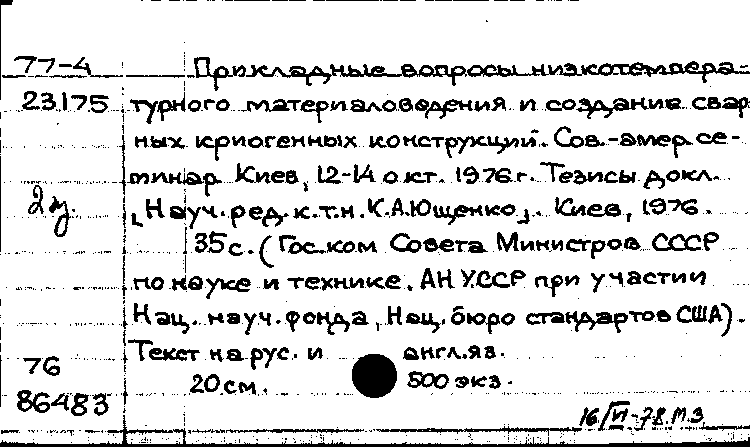 77-4 Прикладные вопросы низкотемпера-
23175 турного материаловедения и создание свар
ных криогенных конструкций. Сов.-амер. се-
минар. Киев, 12-14 окт. 1976 г. Тезисы докл.
2 э. [Науч. ред. к.т.н. К.А. Ющенко]. Киев, 1976.
35 с. (Гос. ком Совета Министров СССР
по науке и технике. АН УССР при участии
Нац. науч. фонда, Нац. бюро стандартов США).
76 Текст на рус. и англ. яз.
86483 20 см. 500 экз.
16/VI-78. М.З